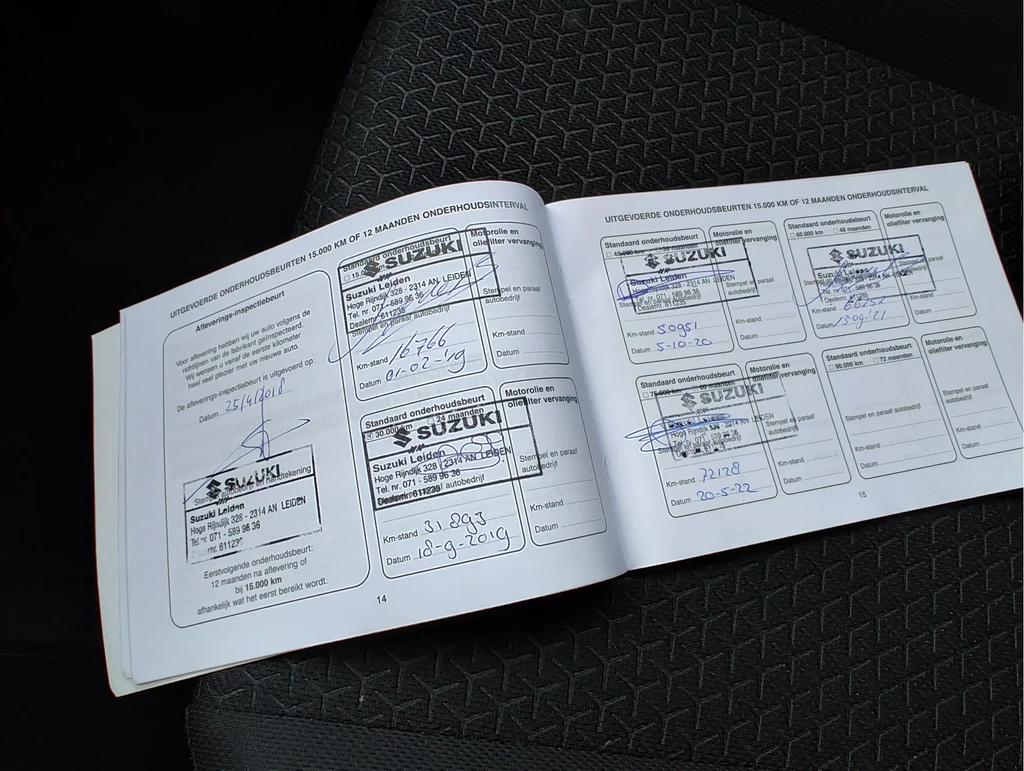 UITGEVOERDE ONDERHOUDSBEURTEN 15.000 KM OF 12 MAANDEN ONDERHOUDSINTERVAL
Afleverings-inspectiebeurt
Voor aflevering hebben wij uw auto volgens de
richtlijnen van de fabrikant geïnspecteerd.
Wij wensen u vanaf de eerste kilometer
heel veel plezier met uw nieuwe auto.
De afleverings-inspectiebeurt is uitgevoerd op:
Datum 25/4/2018
SUZUKI
Suzuki Leiden
Hoge Rijndijk 328 - 2314 AN LEIDEN
Tel. nr. 071 - 589 96 36
Dealernr. 611235
Eerstvolgende onderhoudsbeurt:
12 maanden na aflevering of
bij 15.000 km
afhankelijk wat het eerst bereikt wordt.
Standaard onderhoudsbeurt
SUZUKI
Suzuki Leiden
Hoge Rijndijk 328 - 2314 AN LEIDEN
Tel. nr. 071 - 589 96 36
Dealernr. 611235
Stempel en paraaf autobedrijf
Km-stand 16766
Datum 01-02-19
Motorolie en
oliefilter vervanging
Stempel en paraaf
autobedrijf
Km-stand
Datum
Standaard onderhoudsbeurt
30.000 km 24 maanden
SUZUKI
Suzuki Leiden
Hoge Rijndijk 328 - 2314 AN LEIDEN
Tel. nr. 071 - 589 96 36
Dealernr. 611235
Km-stand 31.893
Datum 18-9-2019
Motorolie en
oliefilter vervanging
Stempel en paraaf
autobedrijf
Km-stand
Datum
14
UITGEVOERDE ONDERHOUDSBEURTEN 15.000 KM OF 12 MAANDEN ONDERHOUDSINTERVAL
Standaard onderhoudsbeurt
SUZUKI
Suzuki Leiden
Hoge Rijndijk 328 - 2314 AN LEIDEN
Tel. nr. 071 - 589 96 36
Dealernr. 611235
Km-stand 50951
Datum 5-10-20
Motorolie en
oliefilter vervanging
Km-stand
Datum
Standaard onderhoudsbeurt
60.000 km 48 maanden
SUZUKI
Suzuki Leiden
Km-stand 66252
Datum 13-09-'21
Motorolie en
oliefilter vervanging
Km-stand
Datum
Standaard onderhoudsbeurt
75.000 km 60 maanden
SUZUKI
Hoge Rijndijk 328 - 2314 AN LEIDEN
Km-stand 72128
Datum 20-5-22
Motorolie en
oliefilter vervanging
Stempel en paraaf
autobedrijf
Km-stand
Datum
Standaard onderhoudsbeurt
90.000 km 72 maanden
Stempel en paraaf autobedrijf
Km-stand
Datum
Motorolie en
oliefilter vervanging
Stempel en paraaf
autobedrijf
Km-stand
Datum
15